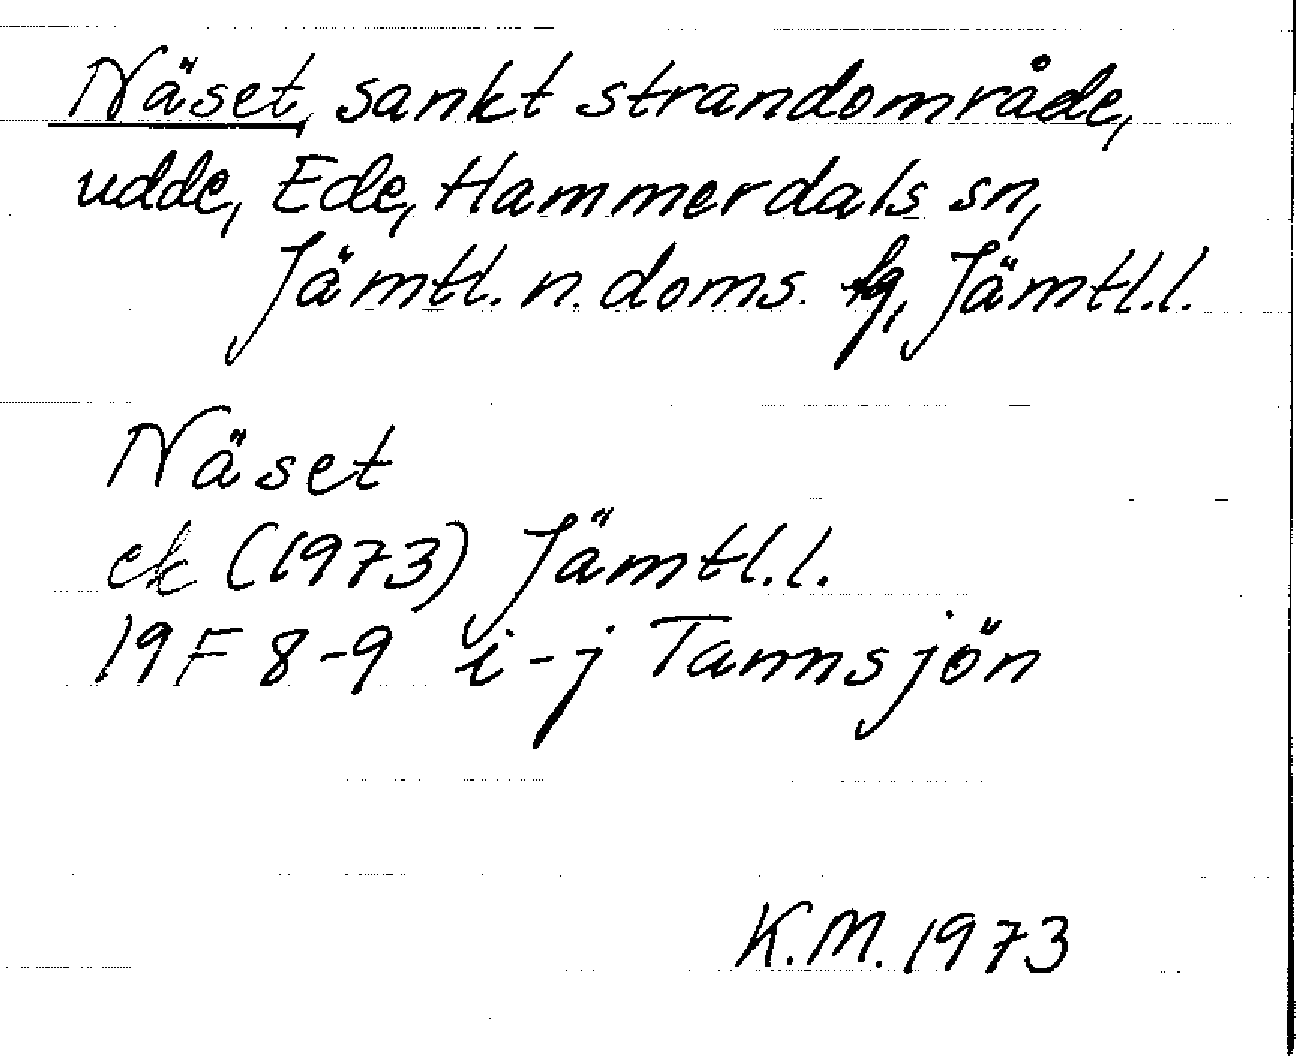 Näset, sankt strandområde,
udde, Ede, Hammerdals sn,
Jämtl. n. doms. fg, Jämtl.l.
Näset
ek (1973) Jämtl.l.
19 F 8-9 i-j Tannsjön
K.M. 1973